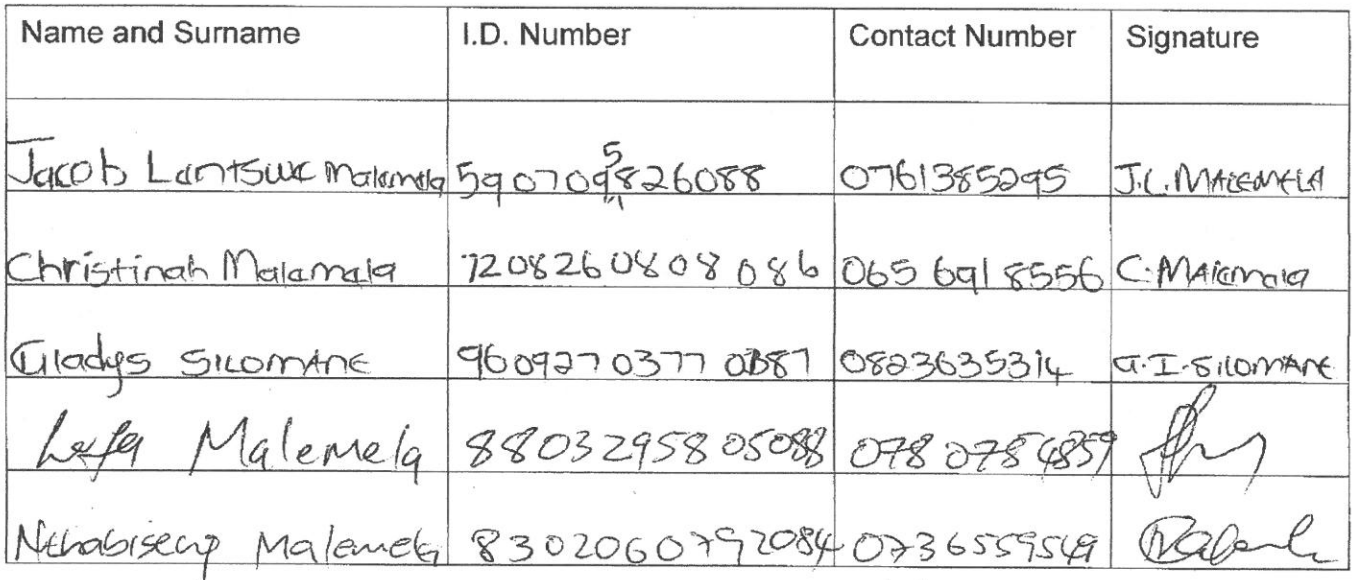 Name and Surname I.D. Number Contact Number Signature
Jacob Lantswe Malemela 5907095826088 0761385295 J.L. MALEMELA
Christinah Malamala 7208260808086 065 691 8556 C. Malamala
Gladys SILOMANE 9609270377087 0823635314 G.I. SILOMANE
Lefa Malemela 8803295805088 078 078 4859
Nthabiseng Malemela 8302060792084 0736559549